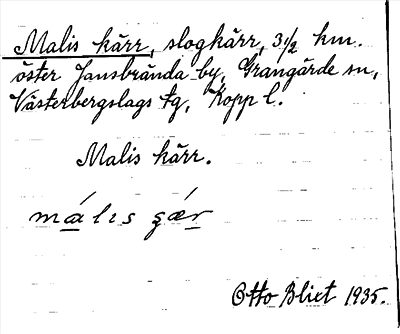 Malis kärr, slogkärr, 3½ km.
öster Jansbrända by, Grangärde sn,
Västerbergslags tg, Kopp l.
Malis kärr.
málıs ʂǽr
Otto Blixt 1935.